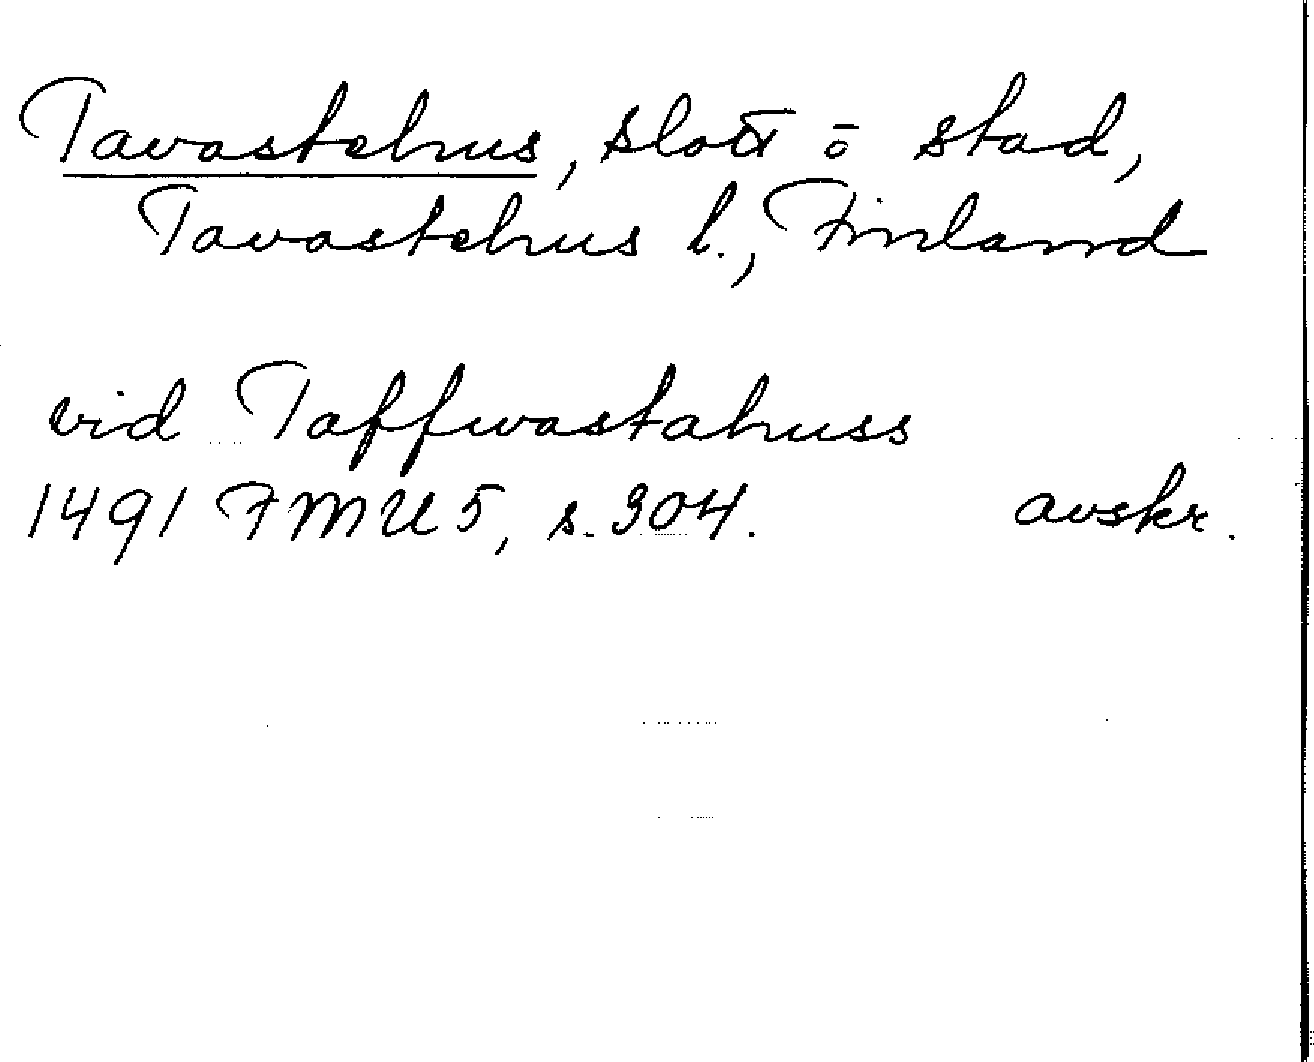 Tavastehus, slott o stad,
Tavastehus l., Finland
vid Taffwastahuss
1491 FMU 5, s. 304. avskr.